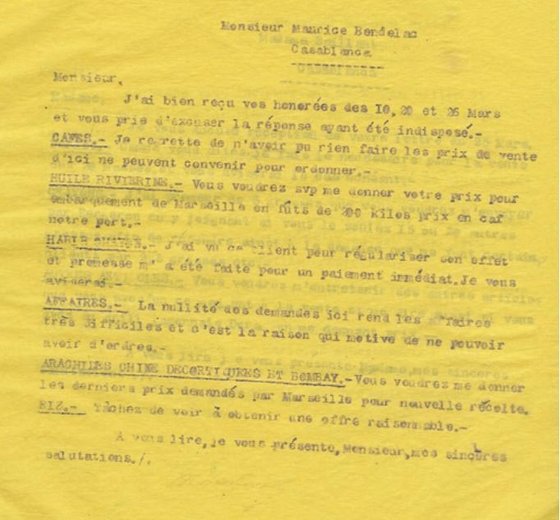 Monsieur Maurice Bendelac
Casablanca
Monsieur,
J'ai bien reçu vos honorées des 10,20 et 26 Mars
et vous prie d'excuser la réponse ayant été indisposé.-
CAFES.- Je regrette de n'avoir pu rien faire les prix de vente
d'ici ne peuvent convenir pour ordonner.-
HUILE RIVIERINE.- Vous voudrez svp me donner votre prix pour
embarquement de Marseille en fûts de 200 kilos prix en caf
notre port.-
J'ai vu ce client pour régulariser son effet
et promesse m' a été faite pour un paiement immédiat.Je vous
aviserai.-
AFFAIRES.- La nullité des demandes ici rend les affaires
très difficiles et c'est la raison qui motive de ne pouvoir
avoir d'ordres.-
ARACHIDES CHINE DECORTIQUEES ET BOMBAY.-Vous voudrez me donner
les derniers prix demandés par Marseille pour nouvelle récolte.
RIZ.- Tâchez de voir à obtenir une offre raisonnable.-
A vous lire,je vous présente,Monsieur,mes sincères
salutations./.